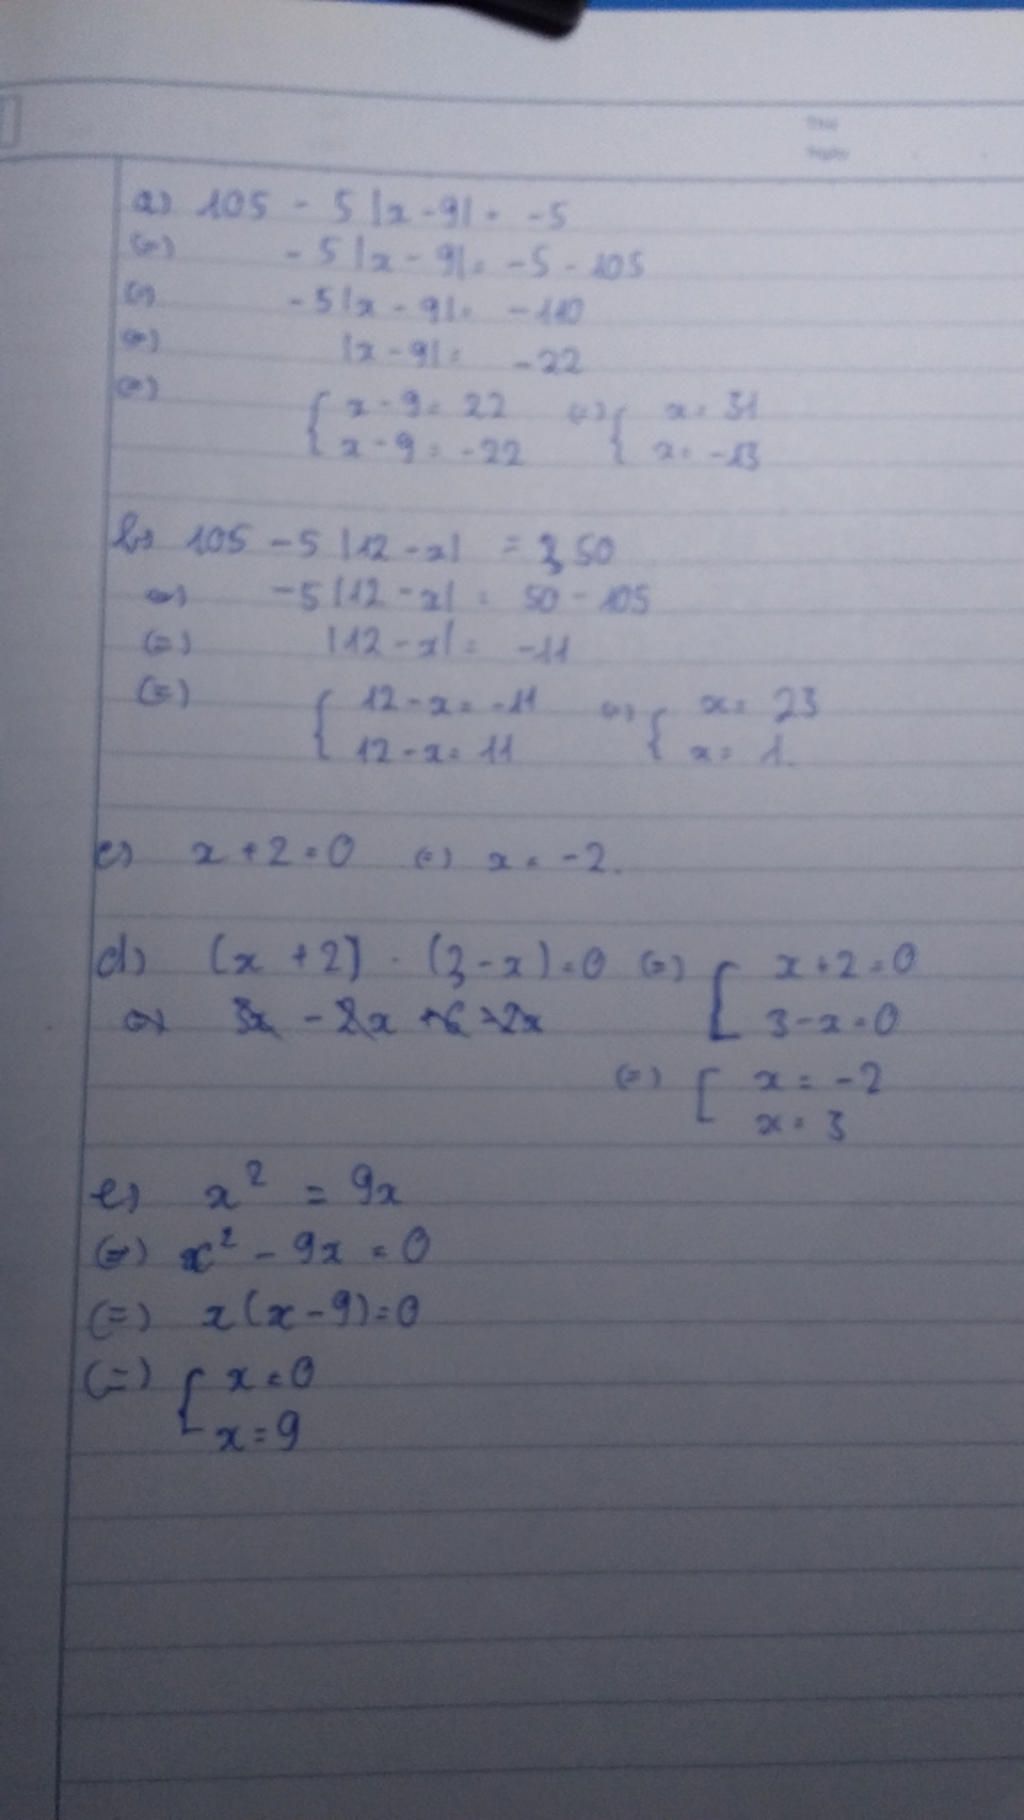 a) 105 - 5 |x - 9| = -5
(=) - 5 |x - 9| = -5 - 105
(=) - 5 |x - 9| = - 110
(=) |x - 9| = - 22
(=) { x - 9 = 22 (=) { x = 31
x - 9 = -22 x = -13
b) 105 - 5 |12 - x| = 50
(=) -5 |12 - x| = 50 - 105
(=) |12 - x| = -11
(=) { 12 - x = -11 (=) { x = 23
12 - x = 11 x = 1.
c) x + 2 = 0 (=) x = -2.
d) (x + 2) . (3 - x) = 0 (=) [ x + 2 = 0
3 - x = 0
(=) [ x = -2
x = 3
e) x² = 9x
(=) x² - 9x = 0
(=) x(x - 9) = 0
(=) [ x = 0
x = 9